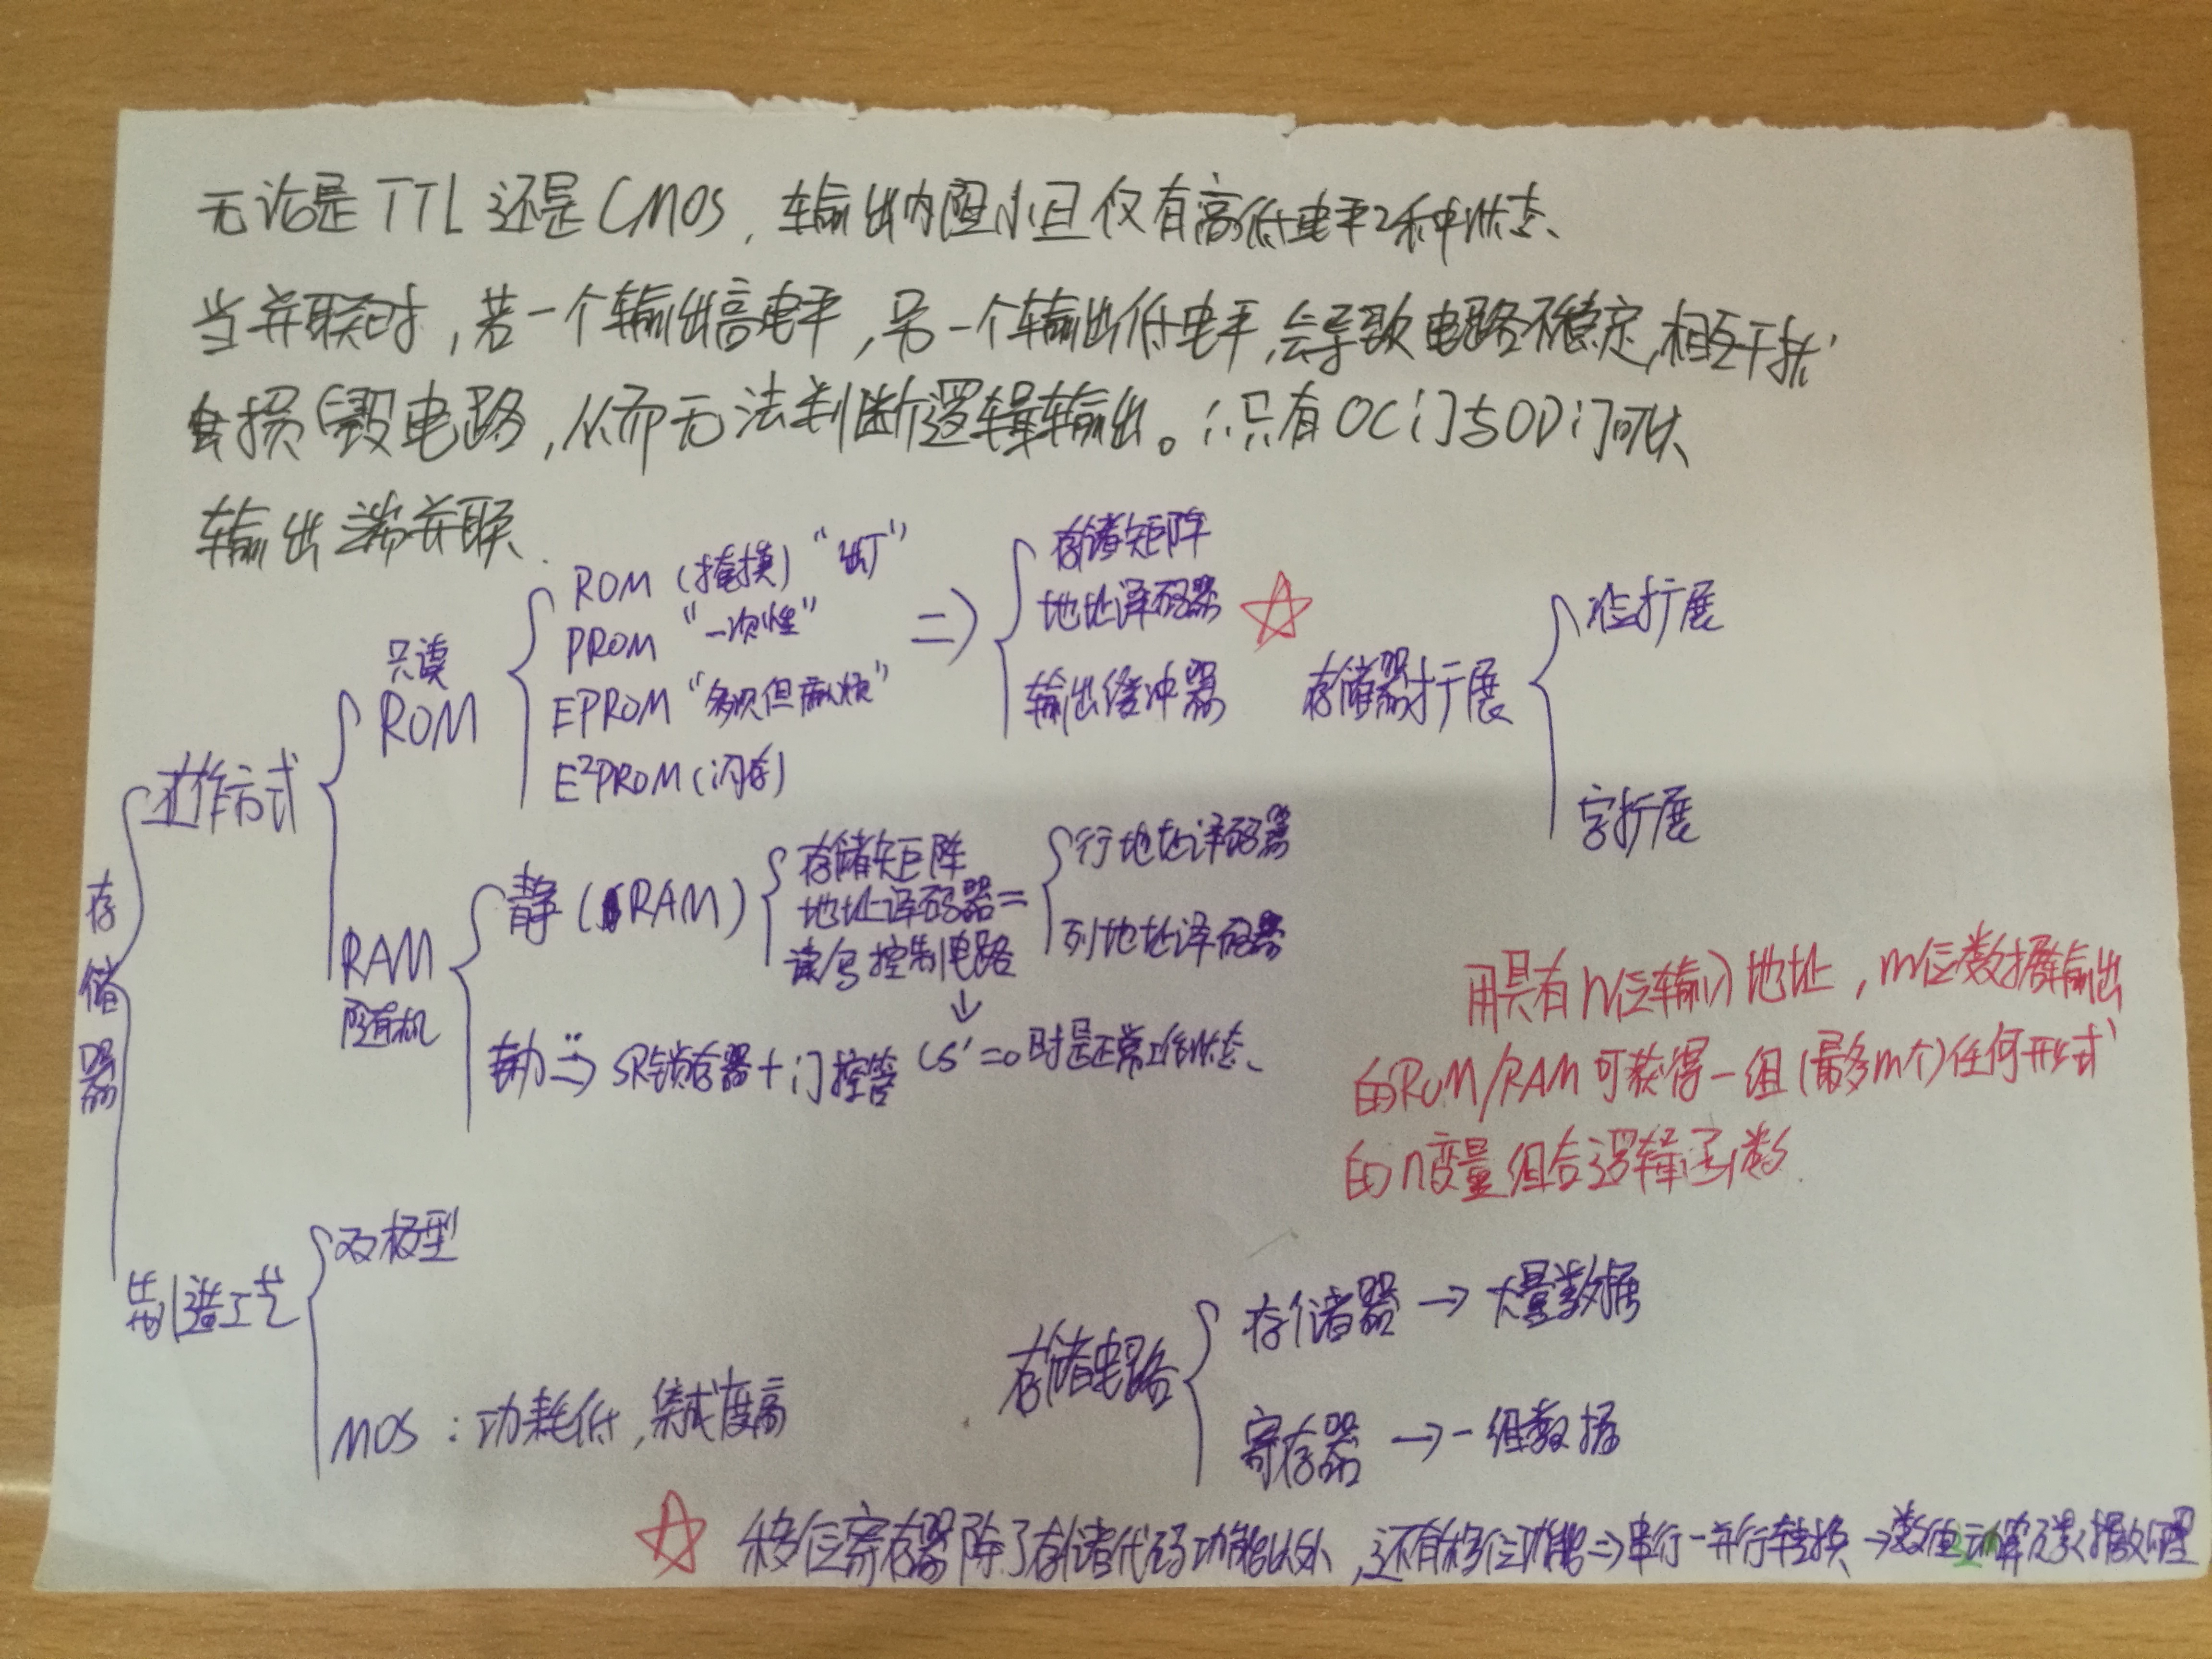 无论是TTL还是CMOS,输出内阻小且仅有高低电平2种状态、
当并联时,若一个输出高电平,另一个输出低电平,会导致电路不稳定,相互干扰
会损毁电路,从而无法判断逻辑输出。∴只有OC门与OD门可以
输出端并联.
存储器
操作方式
只读
ROM
ROM(掩摸)"出厂"
PROM "一次性"
EPROM "多次但麻烦"
E²PROM(闪存)
⇒
存储矩阵
地址译码器 ☆
输出缓冲器
存储器扩展
位扩展
字扩展
RAM
随机
静(SRAM)
存储矩阵
地址译码器=
读/写控制电路
行地址译码器
列地址译码器
↓
CS'=0时是正常工作状态、
动 ⇒ SR锁存器+门控管
用具有n位输入地址,m位数据输出
的ROM/RAM可获得一组(最多m个)任何形式
的n变量组合逻辑函数.
制造工艺
双极型
MOS:功耗低,集成度高
存储电路
存储器→大量数据
寄存器→一组数据
☆ 移位寄存器除了存储代码功能以外,还有移位功能⇒串行-并行转换→数值运算及数据处理